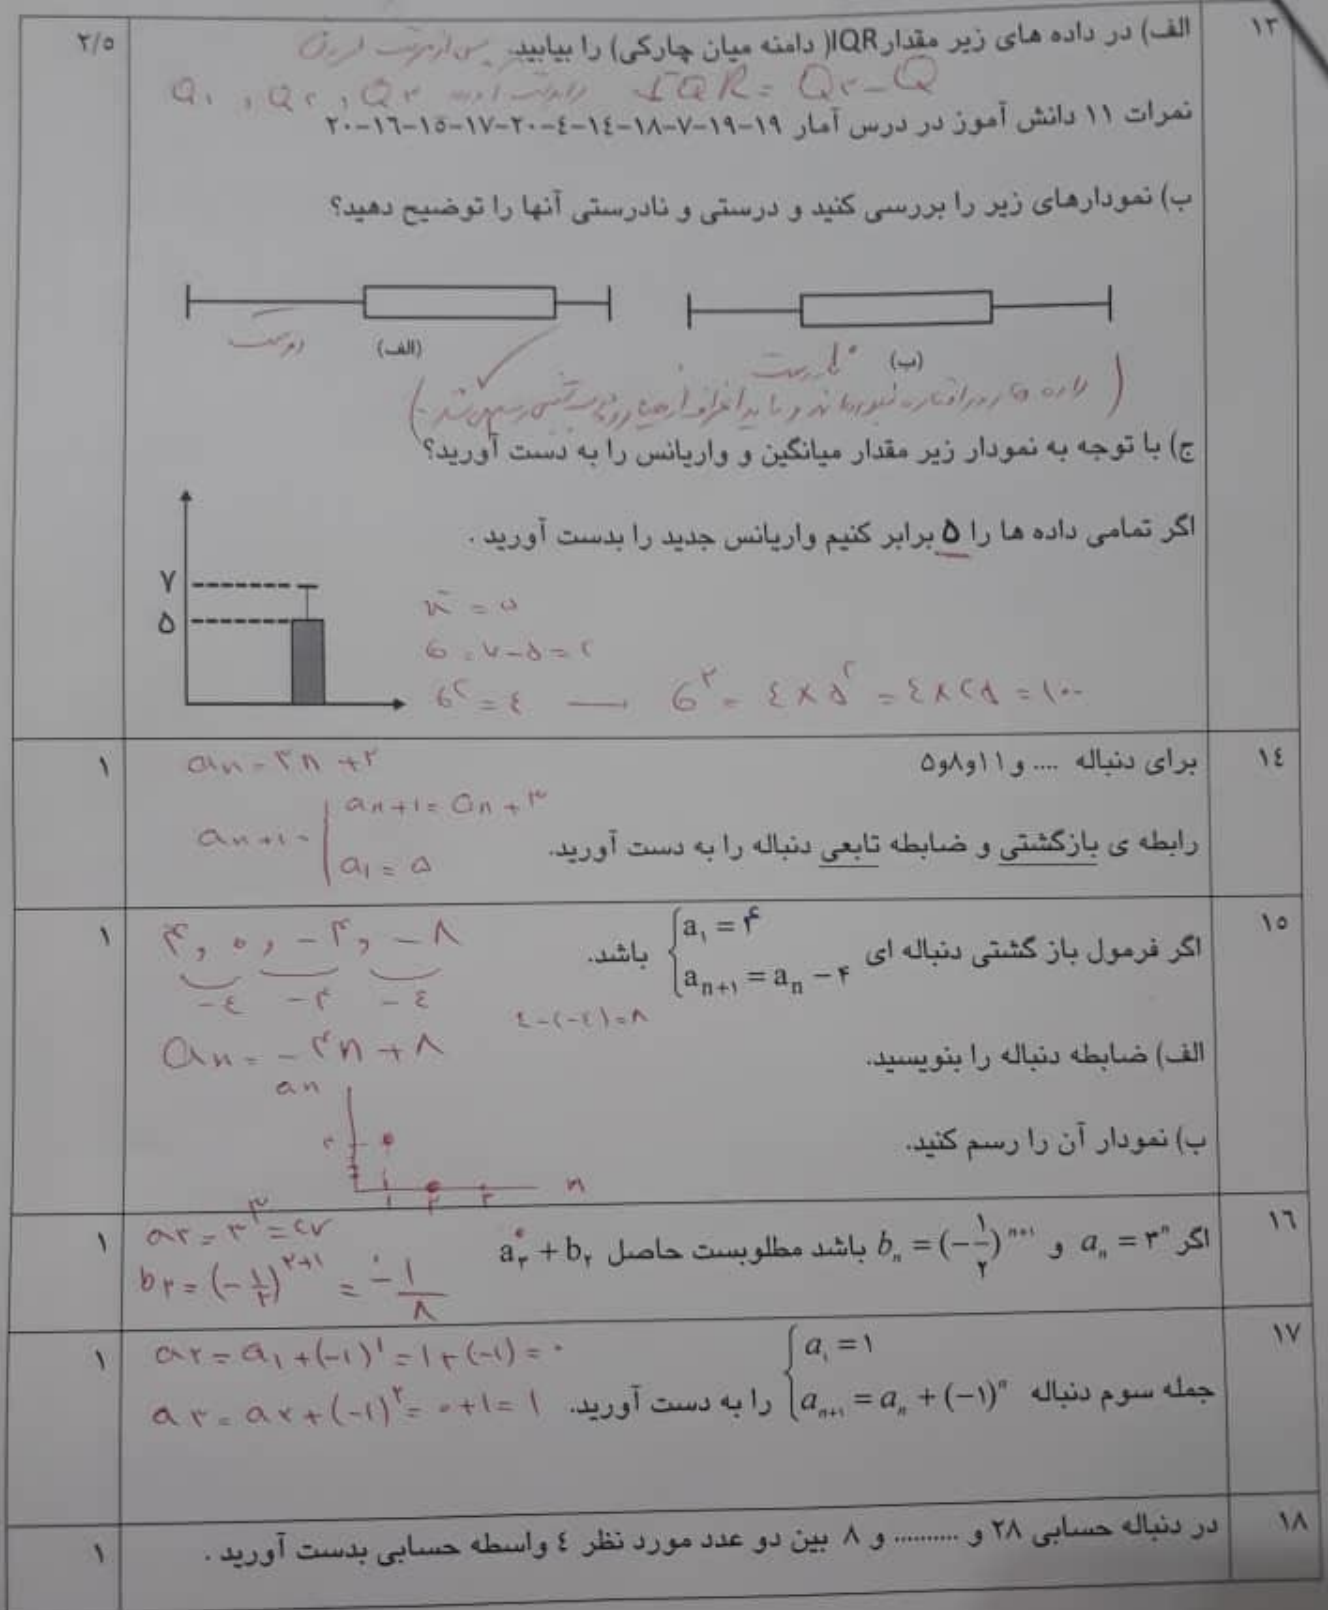 ۱۳
الف) در داده های زیر مقدار IQR( دامنه میان چارکی) را بیابید.
۲/۵
IQR = Q۳ - Q
Q۱ , Q۲ , Q۳
نمرات ۱۱ دانش آموز در درس آمار ۱۹-۱۹-۷-۱۸-۱۴-۴-۲۰-۱۷-۱۵-۱۶-۲۰
ب) نمودارهای زیر را بررسی کنید و درستی و نادرستی آنها را توضیح دهید؟
(الف)
درست
(ب)
نادرست
ج) با توجه به نمودار زیر مقدار میانگین و واریانس را به دست آورید؟
اگر تمامی داده ها را ۵ برابر کنیم واریانس جدید را بدست آورید .
۷
۵
x̄ = ۵
σ = ۷-۵ = ۲
σ۲ = ٤ → σ۲ = ٤×۵۲ = ٤×۲۵ = ۱۰۰
۱٤
برای دنباله .... و۱۱و۸و۵
۱
an = ۳n + ۲
رابطه ی بازگشتی و ضابطه تابعی دنباله را به دست آورید.
an+۱ = an + ۳
an+۱ =
a۱ = ۵
۱۵
اگر فرمول باز گشتی دنباله ای { a۱ = ۴ , an+۱ = an − ۴ باشد.
۱
۴, ۰, -۴, -۸
-٤ -۴ -٤
٤-(-٤)=۸
الف) ضابطه دنباله را بنویسید.
an = -۴n + ۸
ب) نمودار آن را رسم کنید.
an
۴
۱ ۲ ۳ n
۱٦
اگر an = ۳ⁿ و bn = (−۱/۲)ⁿ⁺۱ باشد مطلوبست حاصل a۳ + b۲
۱
a۳ = ۳۳ = ۲۷
b۲ = (-۱/۲)۲+۱ = -۱/۸
۱۷
جمله سوم دنباله { a۱ = ۱ , an+۱ = an + (−۱)ⁿ را به دست آورید.
۱
a۲ = a۱ + (-۱)۱ = ۱+(-۱) = ۰
a۳ = a۲ + (-۱)۲ = ۰+۱ = ۱
۱۸
در دنباله حسابی ۲۸ و .......... و ۸ بین دو عدد مورد نظر ٤ واسطه حسابی بدست آورید .
۱